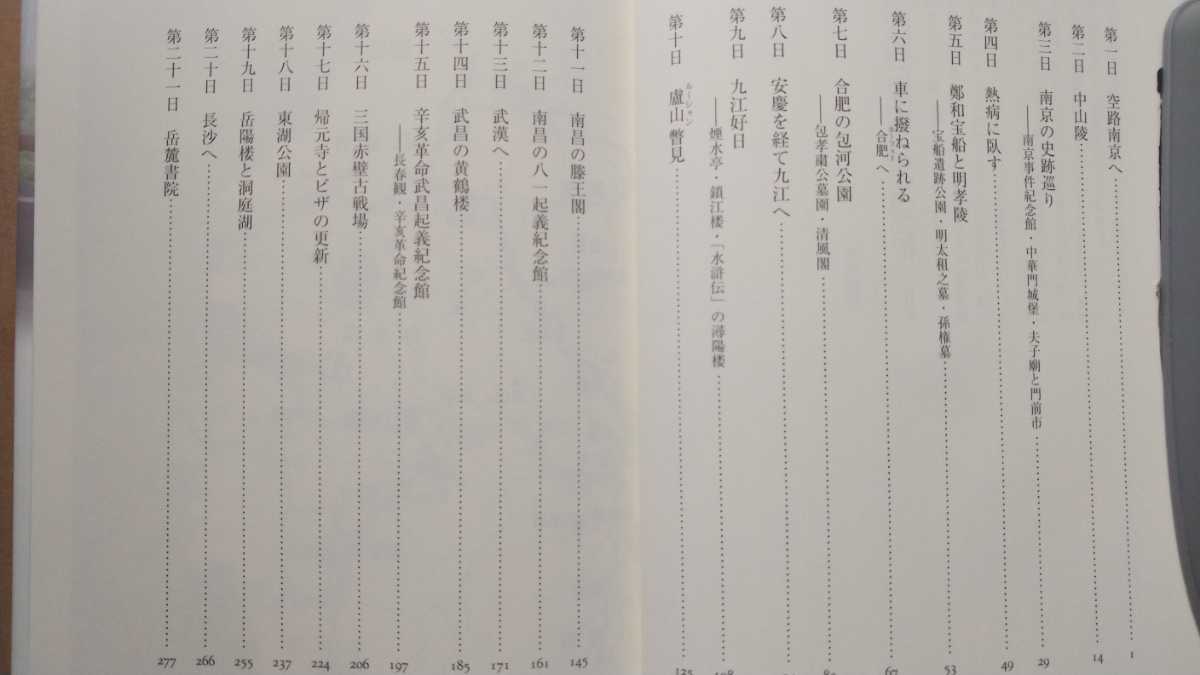 第一日　空路南京へ……1
第二日　中山陵……14
第三日　南京の史跡巡り
――南京事件紀念館・中華門城堡・夫子廟と門前市……29
第四日　熱病に臥す……49
第五日　鄭和宝船と明孝陵
――宝船遺跡公園・明太祖之墓・孫権墓……53
第六日　車に撥ねられる
――合肥へ……67
第七日　合肥の包河公園
――包孝粛公墓園・清風閣……
第八日　安慶を経て九江へ……
第九日　九江好日
――煙水亭・鎖江楼・「水滸伝」の潯陽楼……108
第十日　盧山瞥見……125
ルーシャン
第十一日　南昌の滕王閣……145
第十二日　南昌の八一起義紀念館……161
第十三日　武漢へ……171
第十四日　武昌の黄鶴楼……185
第十五日　辛亥革命武昌起義紀念館
――長春観・辛亥革命紀念館……197
第十六日　三国赤壁古戦場……206
第十七日　帰元寺とビザの更新……224
第十八日　東湖公園……237
第十九日　岳陽楼と洞庭湖……255
第二十日　長沙へ……266
第二十一日　岳麓書院……277